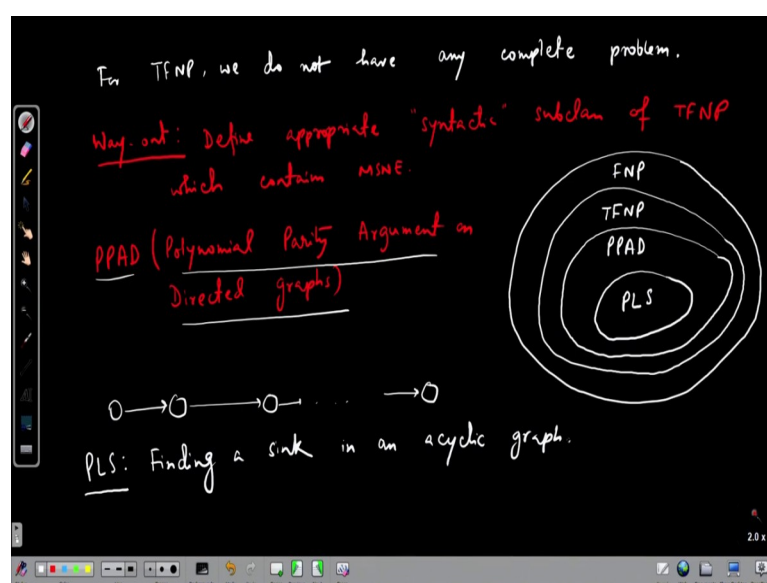 For TFNP, we do not have any complete problem.
Way-out: Define appropriate "syntactic" subclass of TFNP
which contain MSNE.
PPAD (Polynomial Parity Argument on
Directed graphs)
FNP
TFNP
PPAD
PLS
PLS: Finding a sink in an acyclic graph.
2.0 x